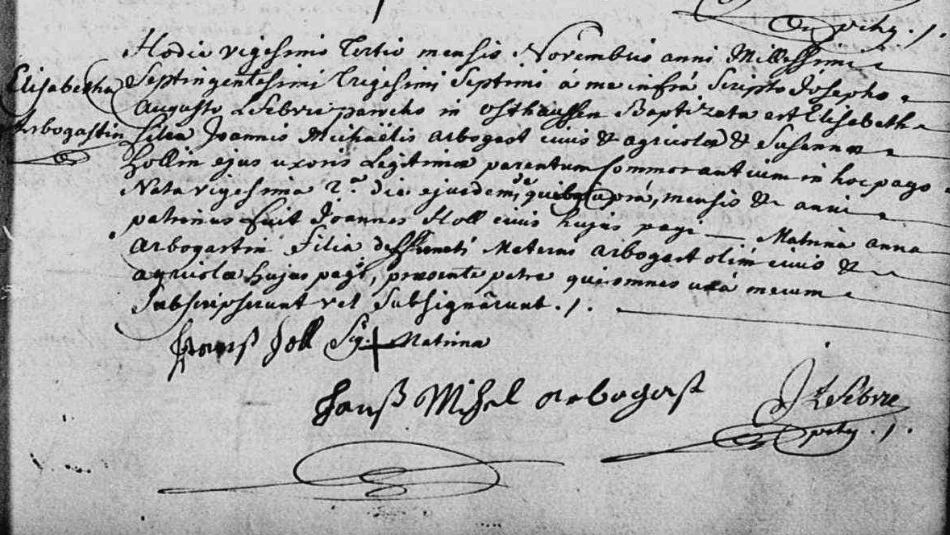 Hodie vigesimo Tertio mensis Novembris anni Millessimi
Elisabetha
Septingentesimi Trigesimi Septimi à me infrà Scripto Josepho
Augusto Lefebvre parocho in osthaussen Baptizata est Elisabetha
Arbogastin
filia Joannis Michaelis arbogast civis & agricolæ & Susannæ
ejus uxoris Legitimæ parentum Commorantium in hoc pago
Nata vigesima 2.ª die ejusdem, mensis & anni
patrinus fuit Joannes civis hujus pagi Matrina anna
arbogastin filia deffuncti Materni arbogast olim civis &
agricolæ hujus pagi, præsente patre qui omnes unà mecum
Subscripserunt vel Subsignârunt ./.
Hanß Sig + Matrinæ
Hanß Mihel arbogast
J Lefebvre
./.